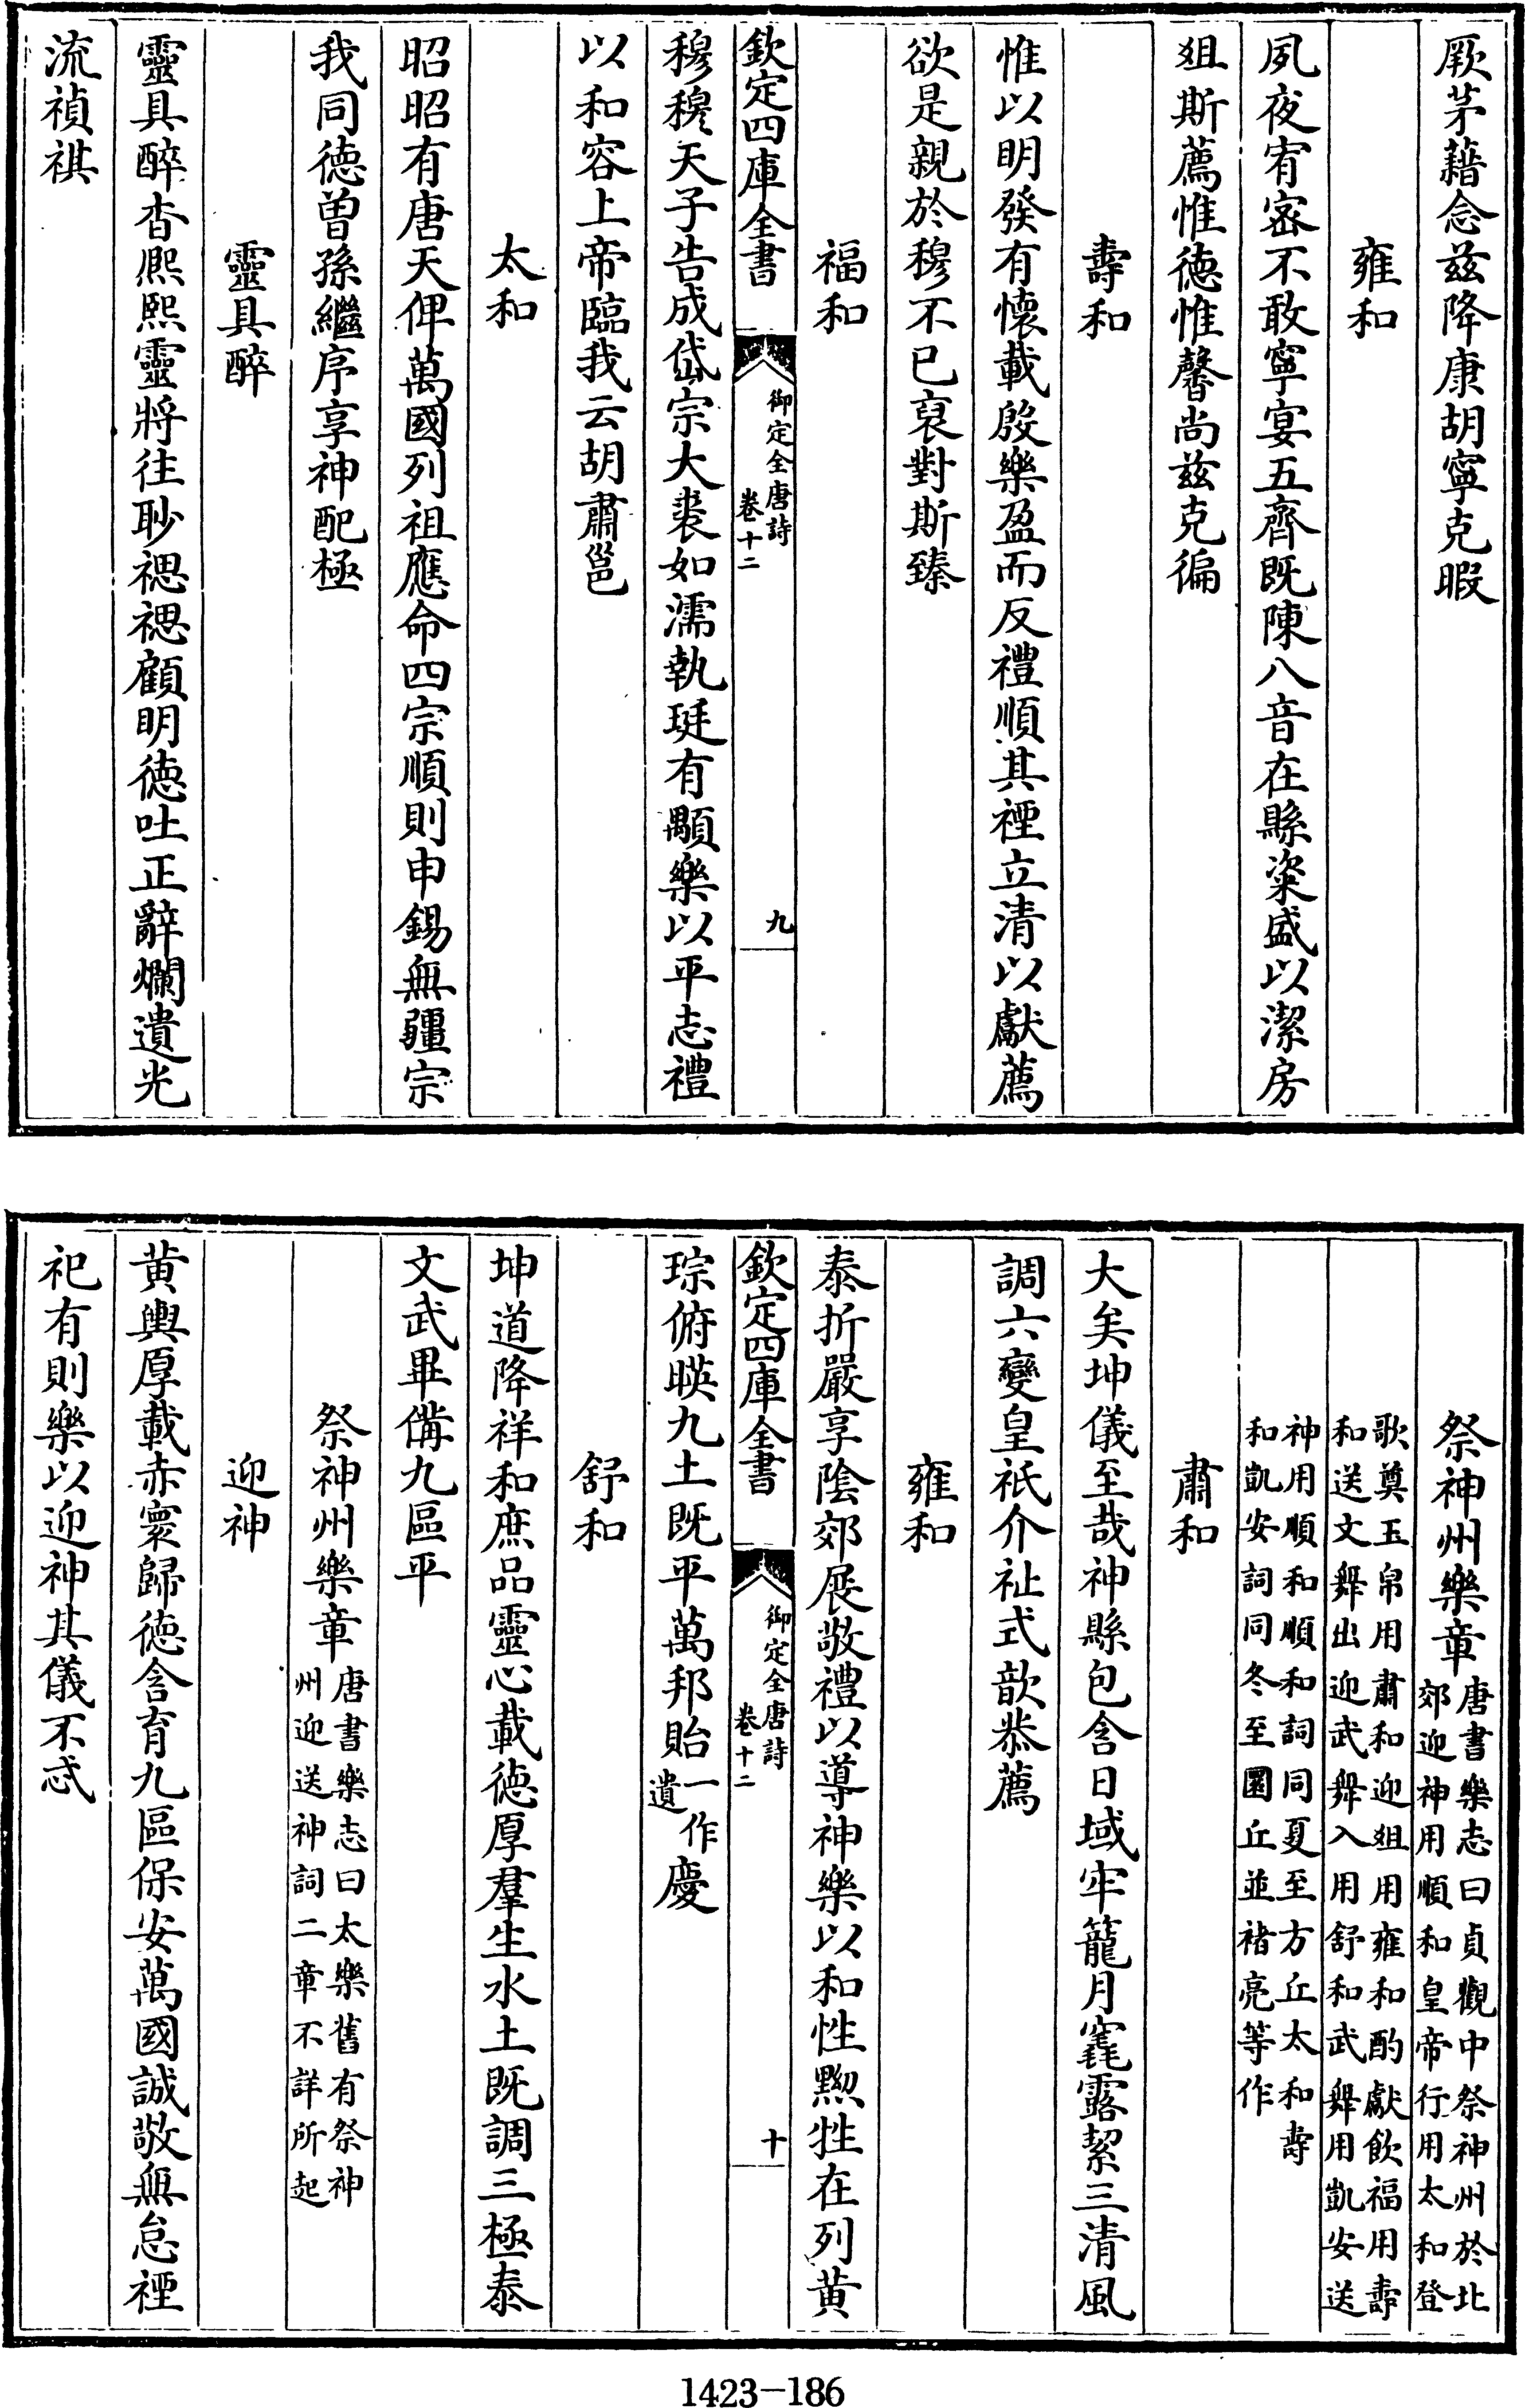 厥茅藉念兹降康胡寧克暇
雍和
夙夜宥宻不敢寧宴五齊既陳八音在縣粢盛以潔房
俎斯薦惟徳惟馨尚兹克徧
壽和
惟以明發有懐載殷樂盈而反禮順其禋立清以獻薦
欲是親於穆不已裒對斯臻
福和
欽定四庫全書
御定全唐詩
卷十二
九
穆穆天子告成岱宗大裘如濡執珽有顒樂以平志禮
以和容上帝臨我云胡肅邕
太和
昭昭有唐天俾萬國列祖應命四宗順則申錫無疆宗
我同徳曽孫繼序享神配極
靈具醉
靈具醉杳熈熙靈將往眇禗禗顧明徳吐正辭爛遺光
流禎祺
祭神州樂章
唐書樂志曰貞觀中祭神州於北
郊迎神用順和皇帝行用太和登
歌奠玉帛用肅和迎俎用雍和酌獻飲福用壽
和送文舞出迎武舞入用舒和武舞用凱安送
神用順和順和詞同夏至方丘太和壽
和凱安詞同冬至圜丘並褚亮等作
肅和
大矣坤儀至哉神縣包含日域牢籠月竁露絜三清風
調六變皇祇介祉式歆恭薦
雍和
泰折嚴享陰郊展敬禮以導神樂以和性黝牲在列黄
欽定四庫全書
御定全唐詩
卷十二
十
琮俯暎九土既平萬邦貽一作遺慶
舒和
坤道降祥和庶品靈心載徳厚羣生水土既調三極泰
文武畢備九區平
祭神州樂章
唐書樂志曰太樂舊有祭神
州迎送神詞二章不詳所起
迎神
黄輿厚載赤寰歸徳含育九區保安萬國誠敬無怠禋
祀有則樂以迎神其儀不忒
1423-186